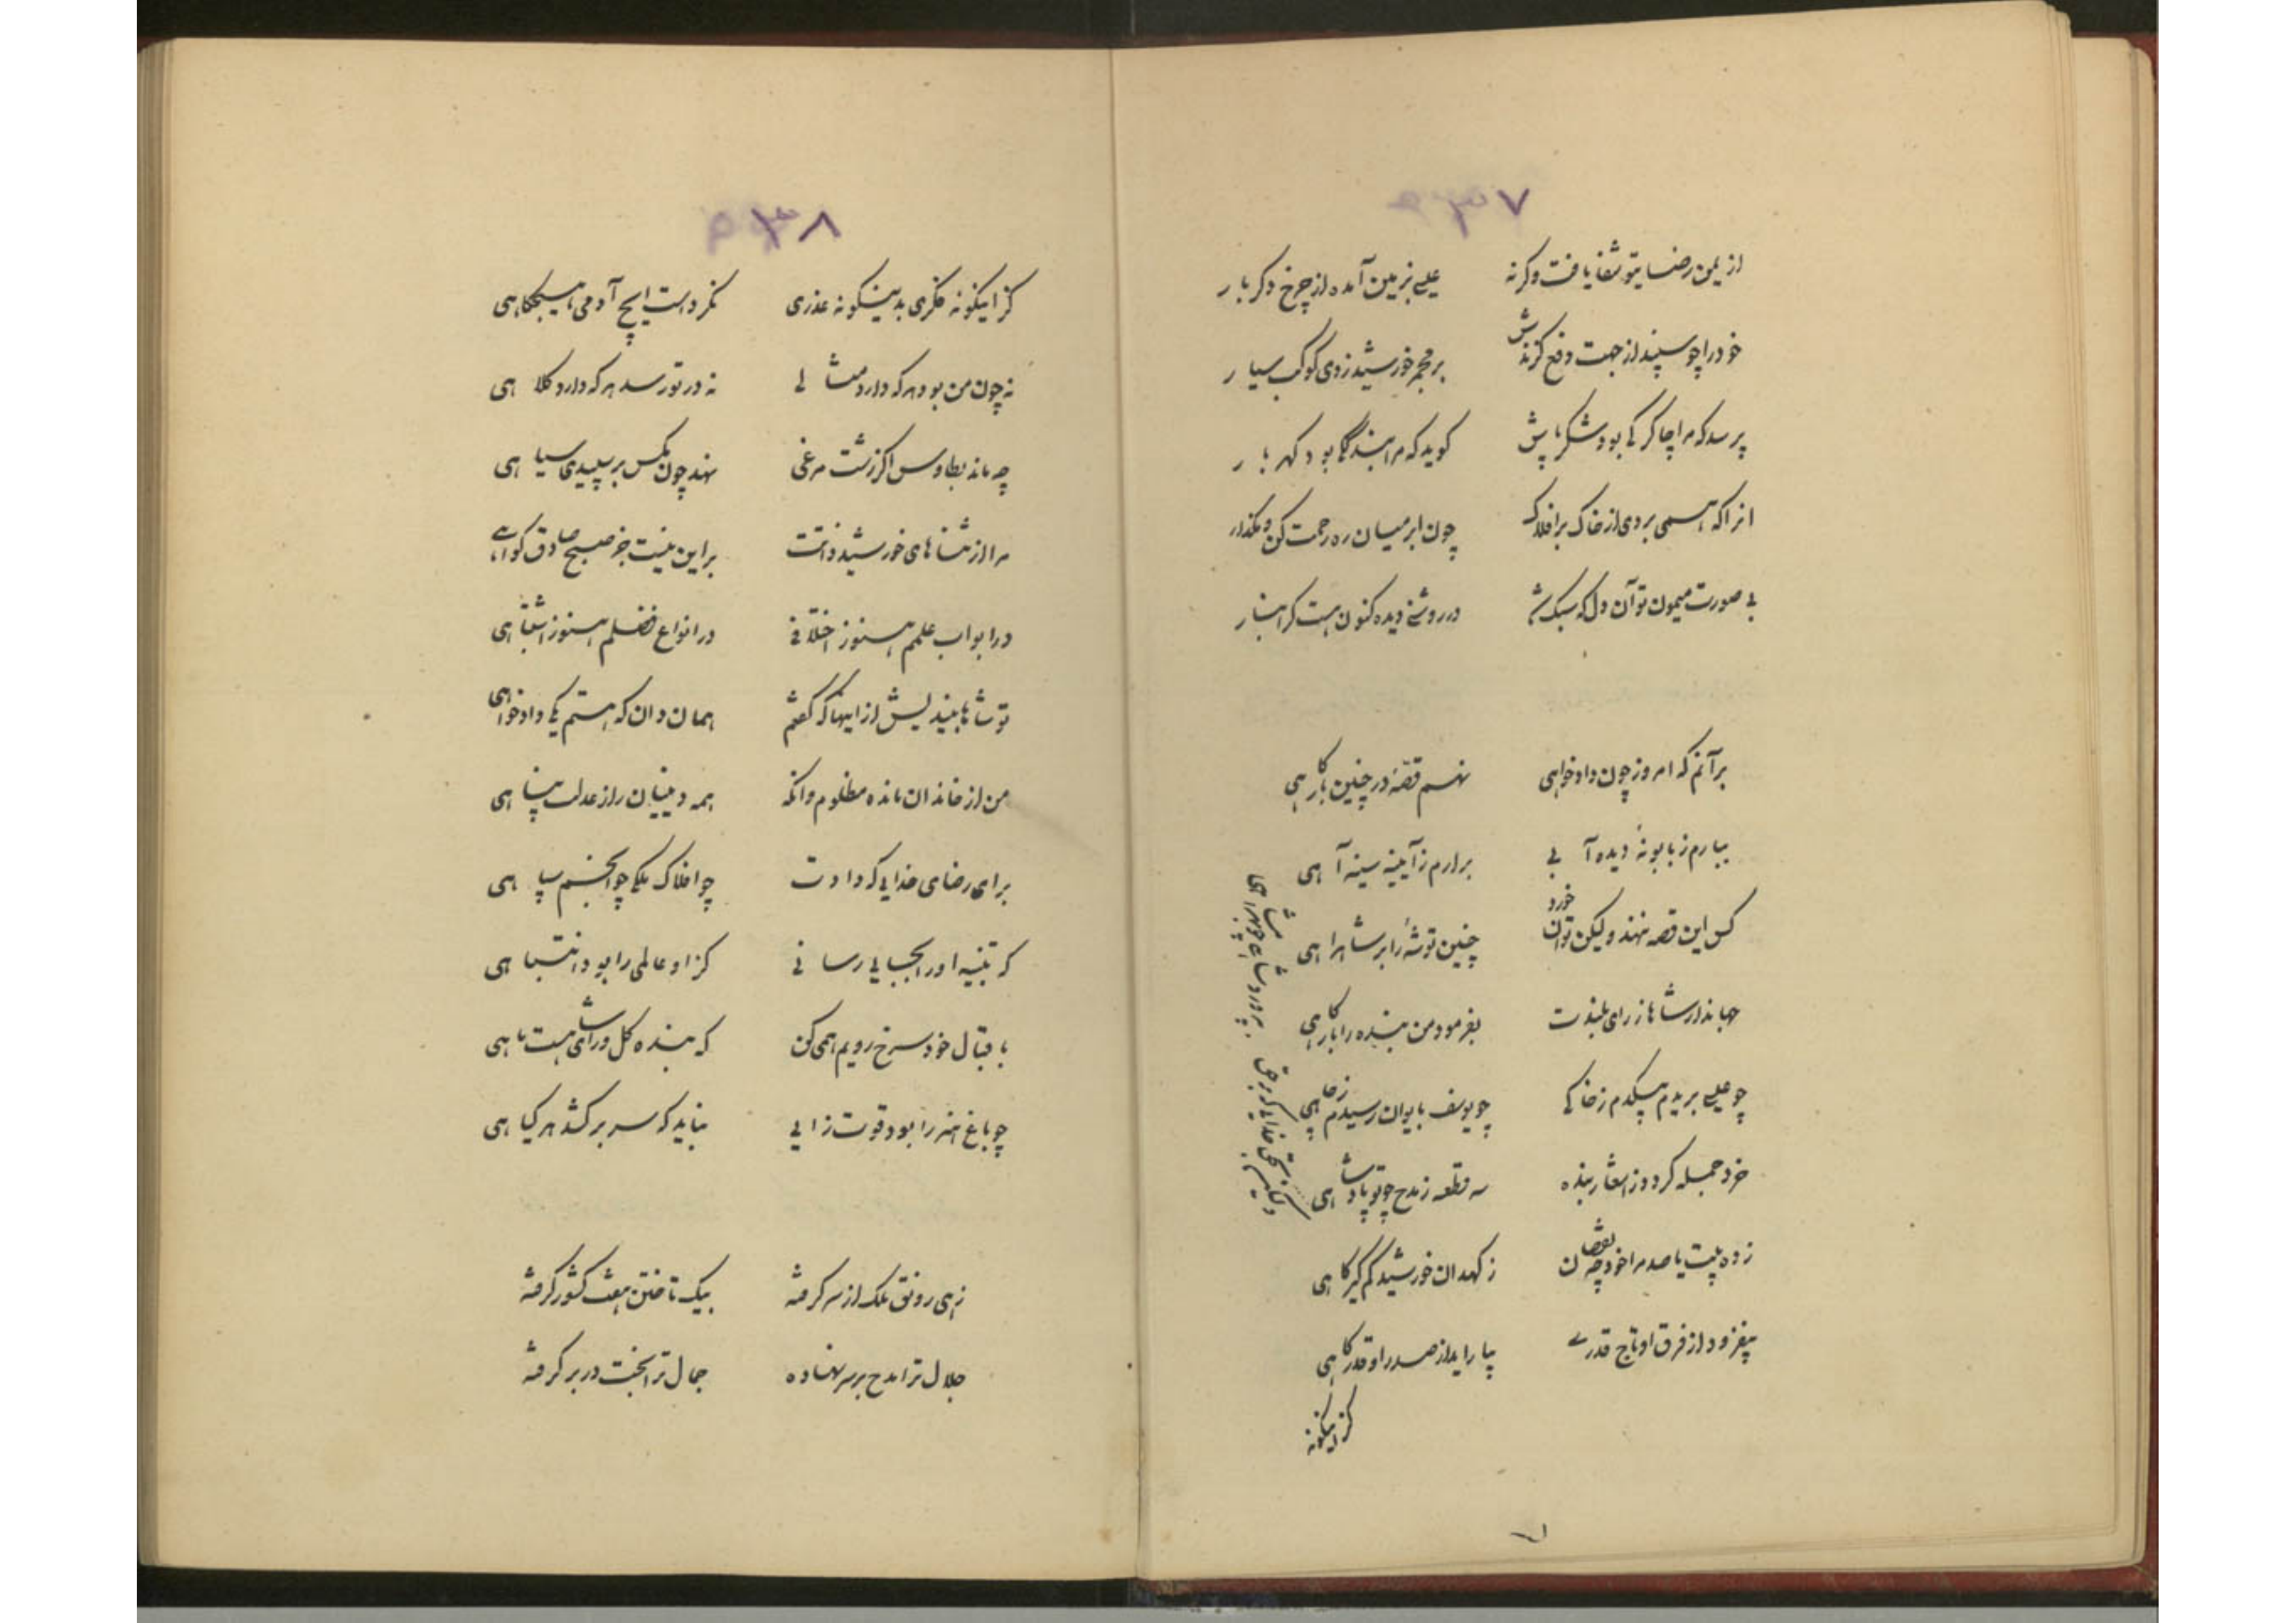 از یمن رضا یتو شفا یافت وکرنه علیے بزمین آمده از چرخ دکر بار
خود را چو سپند از جهت دفع کزندش بر مجمر خورشید زدی کوکب سیار
پرسد که مرا چاکر کے بود شکر پاش کوید که مرا بندکے بود کهر بار
انرا که همی بردی از خاک بر افلاک چون ابر میان ره رحمت کن و مکذار
بی صورت میمون تو آن دل که سبک شد در روشنے دیده کنون هست کرانبار
برآنم که امروز چون دادخواهی نهم قصهٔ در چنین بارکاهی
ببارم ز بابونهٔ دیده آبی برارم ز آیینه سینه آهی
کس این قصه نهند ولیکن توان خورد چنین توشهٔ را بر شاهراهی
جهاندار شاها ز رای بلندت بفرمود من بنده را بارکاهی
چو علیے بریدم بیکدم ز خاکی چو یوسف بایوان رسیدم ز چاهی
خرد جمله کرد و ز اشعار بنده سه قطعه ز مدح چو تو پادشاهی
زده بیت یا صد مرا خود چه نقصان ز کهدان خورشید کم کیر کاهی
بیفزود از فرق او تاج قدرے بیاراید از صدر او قدر کاهی
کز اینکونه
کز اینکونه فکری بدینکونه عذری نکردست ایچ آدمی هیچکاهی
نه چون من بود هر که دارد مثالی نه در تو رسد هر که دارد کلاهی
چه ماند بطاوس اکر زشت مرغی نهد چون مکس بر سپیدی سیاهی
مرا از نشانهای خورشید ذاتت براین نیست جز صبح صادق کواهے
در ابواب علمم هنوز اختلافی در انواع فضلم هنوز اشتباهی
تو شاها بیندیش از اینها که کفتم همان دان که هستم یکے دادخواهی
من از خاندان مانده مظلوم وانکه همه دینیان را ز عدلت پناهی
برای رضای خدایی که دادت چو افلاک ملکے چو انجم سپاهی
که تنبیه او را بجایی رسانی کز او عالمی را بود انتباهی
باقبال خود سرخ رویم همی کن که بنده کل ورای شاهیست ماهی
چو باغ هنر را بود قوت زایی نباید که سر برکشد هر کیاهی
زهی رونق ملک از سر کرفته بیک تاختن هفت کشور کرفته
جلال ترا مدح بر سر نهاده جمال ترا بخت در بر کرفته